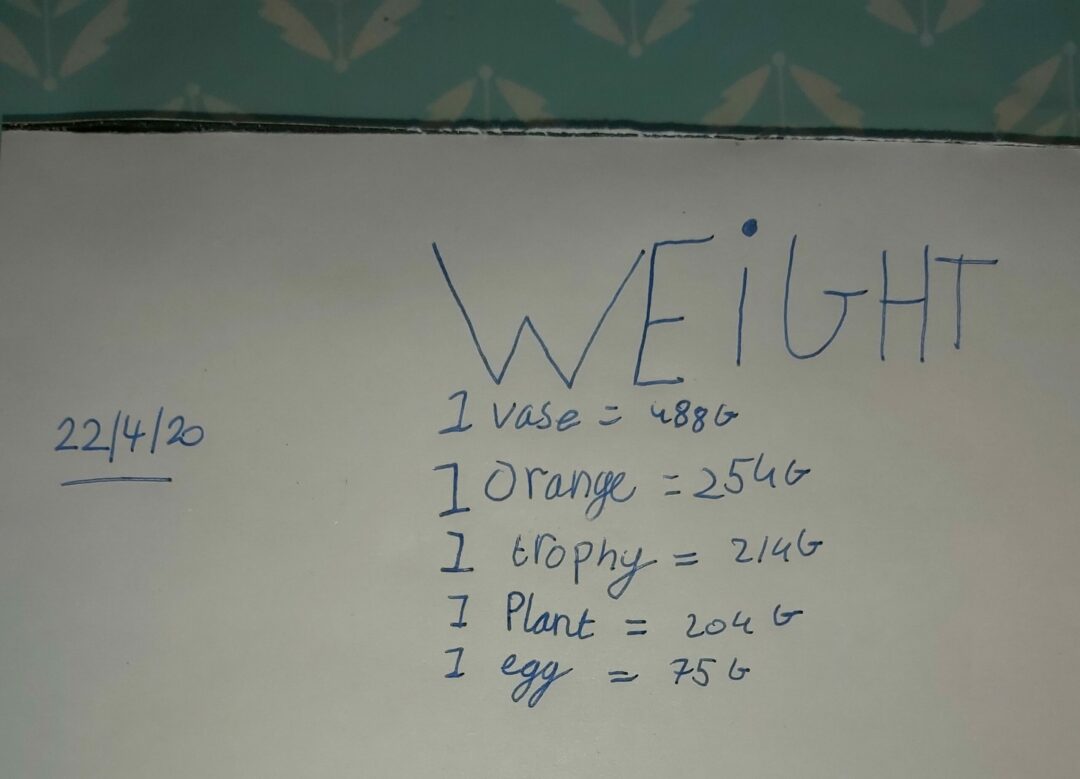 WEiGHT
22/4/20
1 vase = 488G
1 Orange = 254G
1 trophy = 214G
1 Plant = 204 G
1 egg = 75 G